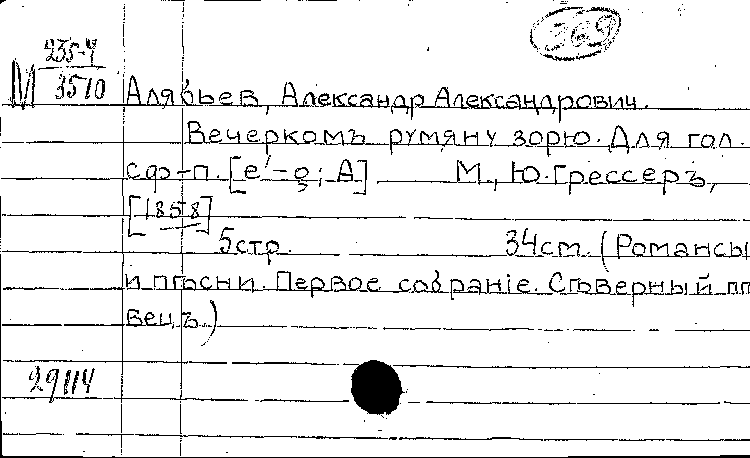 369
М 235-4
3510
Алябьев, Александр Александрович.
Вечеркомъ румяну зорю. Для гол.
с ф-п. [e'-g; A] М., Ю. Грессеръ,
[1858]
5 стр. 34 см. (Романсы
и пѣсни. Первое собранiе. Сѣверный пѣ
вецъ.)
29114